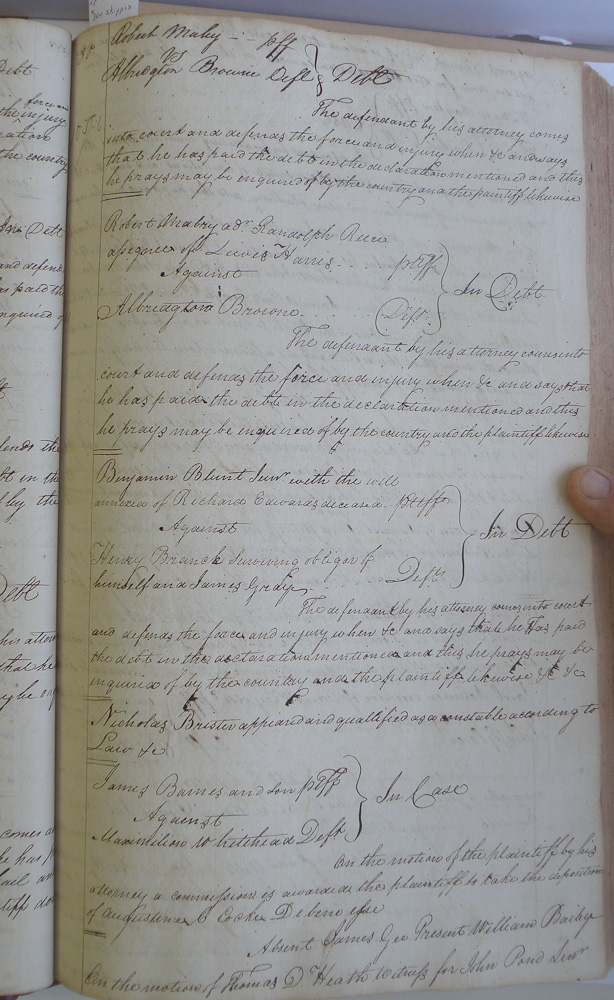 Robert Mabry - - pff
VS
Albridgton Browne Deft } Debt
The defendant by his attorney comes
into court and defends the force and injury when &c and says
that he has paid the debt in the declaration mentioned and this
he prays may be enquired of by the country and the plaintiff likewise
Robert Mabry adr Randolph Rece
assignee of Lewis Harris - - - ptff
Against } In Debt
Albridgton Browne - - - Deft
The defendant by his attorney comes into
court and defends the force and injury when &c and says that
he has paid the debt in the declaration mentioned and this
he prays may be enquired of by the country and the plaintiff likewise
Benjamin Blunt Junr with the will
annexed of Richard Edwards deceased - ptiffs
Against } In Debt
Henry Branch Surviving obligor of
himself and James Gray - - Deft
The defendant by his attorney comes into court
and defends the force and injury when &c and says that he has paid
the debt in the declaration mentioned and this he prays may be
inquired of by the country and the plaintiff likewise &c &c
Nicholas Brister appeared and qualified as a constable according to
Law &c
James Barnes and son ptff
Against } In Case
Maximilion Whitehead Deft
On the motion of the plaintiff by his
attorney a commission is awarded the plaintiff to take the deposition
of Augustine C Cocke Debene esse
Absent James Geo Present William Bailey
On the motion of Thomas D Heath Witness for John Pond Junr